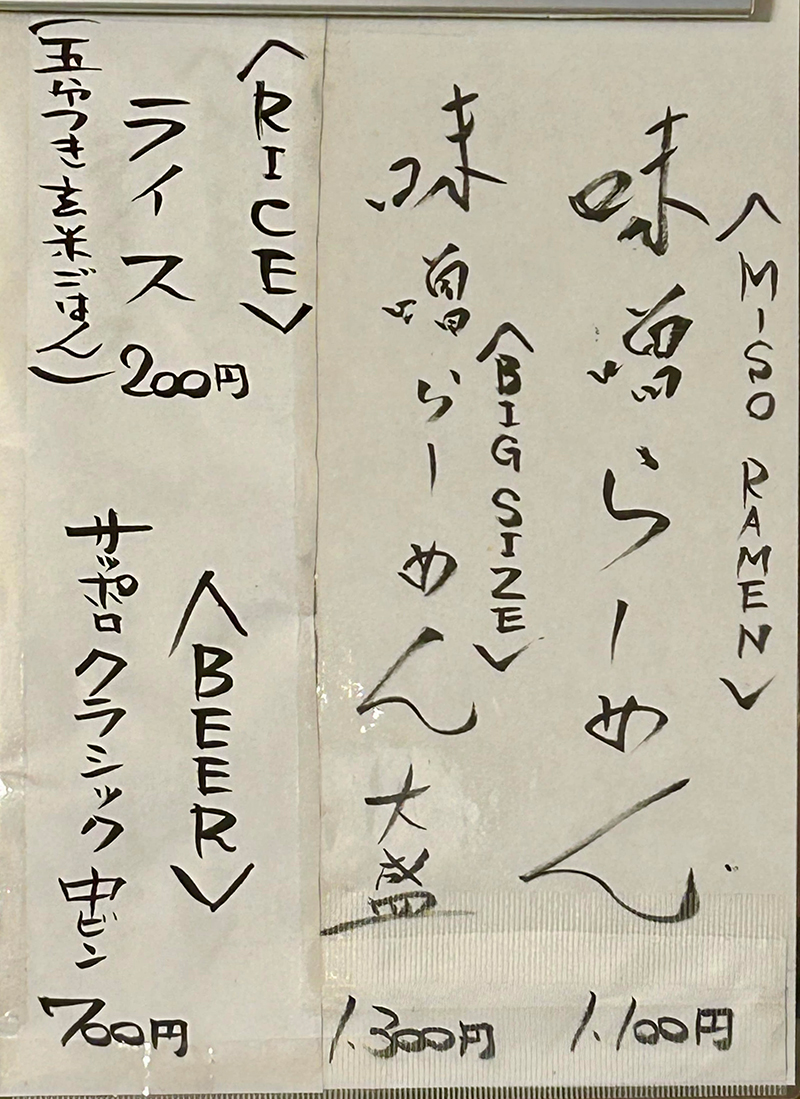 〈MISO RAMEN〉
味噌らーめん
1.100円
〈BIG SIZE〉
味噌らーめん 大盛
1.300円
〈RICE〉
ライス
200円
(五分つき玄米ごはん)
〈BEER〉
サッポロクラシック 中ビン
700円